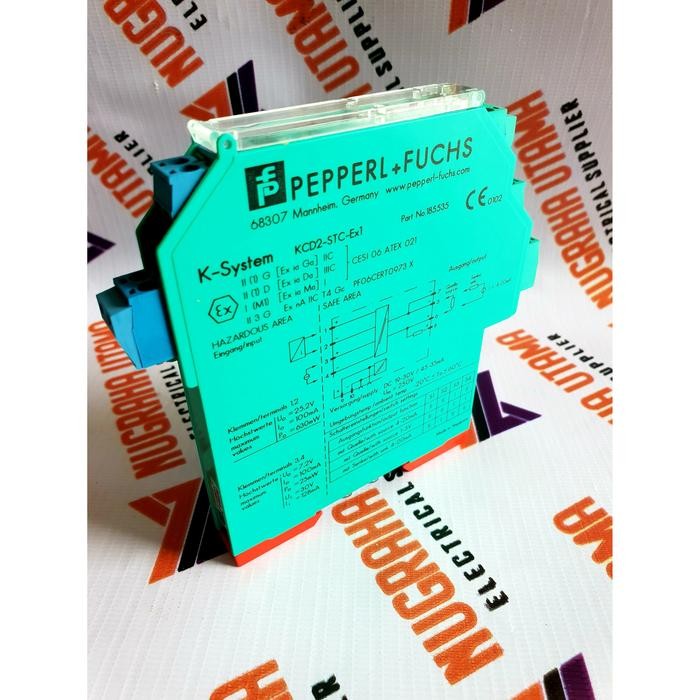 PEPPERL+FUCHS
68307 Mannheim, Germany www.pepperl-fuchs.com
Part No.185535 CE 0102
K-System KCD2-STC-Ex1
II (1) G [Ex ia Ga] IIC
II (1) D [Ex ia Da] IIIC
I (M1) [Ex ia Ma]
CESI 06 ATEX 021
Ex
II 3 G Ex nA IIC T4 Gc PF06CERT0973 X
HAZARDOUS AREA SAFE AREA
Eingang/input Ausgang/output
Versorgung/supply DC 19-30V / 45-35mA
Klemmen/terminals 1,2
Höchstwerte U₀ =25,2V
maximum I₀ =100mA
values P₀ =630mW
Klemmen/terminals 3,4
Höchstwerte U₀ =7,2V
maximum I₀ =100mA
values P₀ =25mW
Uᵢ =30V
Iᵢ =128mA
S1 S2 S3 S4
NUGRAHA UTAMA
ELECTRICAL SUPPLIER
NUGRAHA UTAMA
ELECTRICAL SUPPLIER
NUGRAHA UTAMA
ELECTRICAL SUPPLIER
NUGRAHA UTAMA
ELECTRICAL SUPPLIER